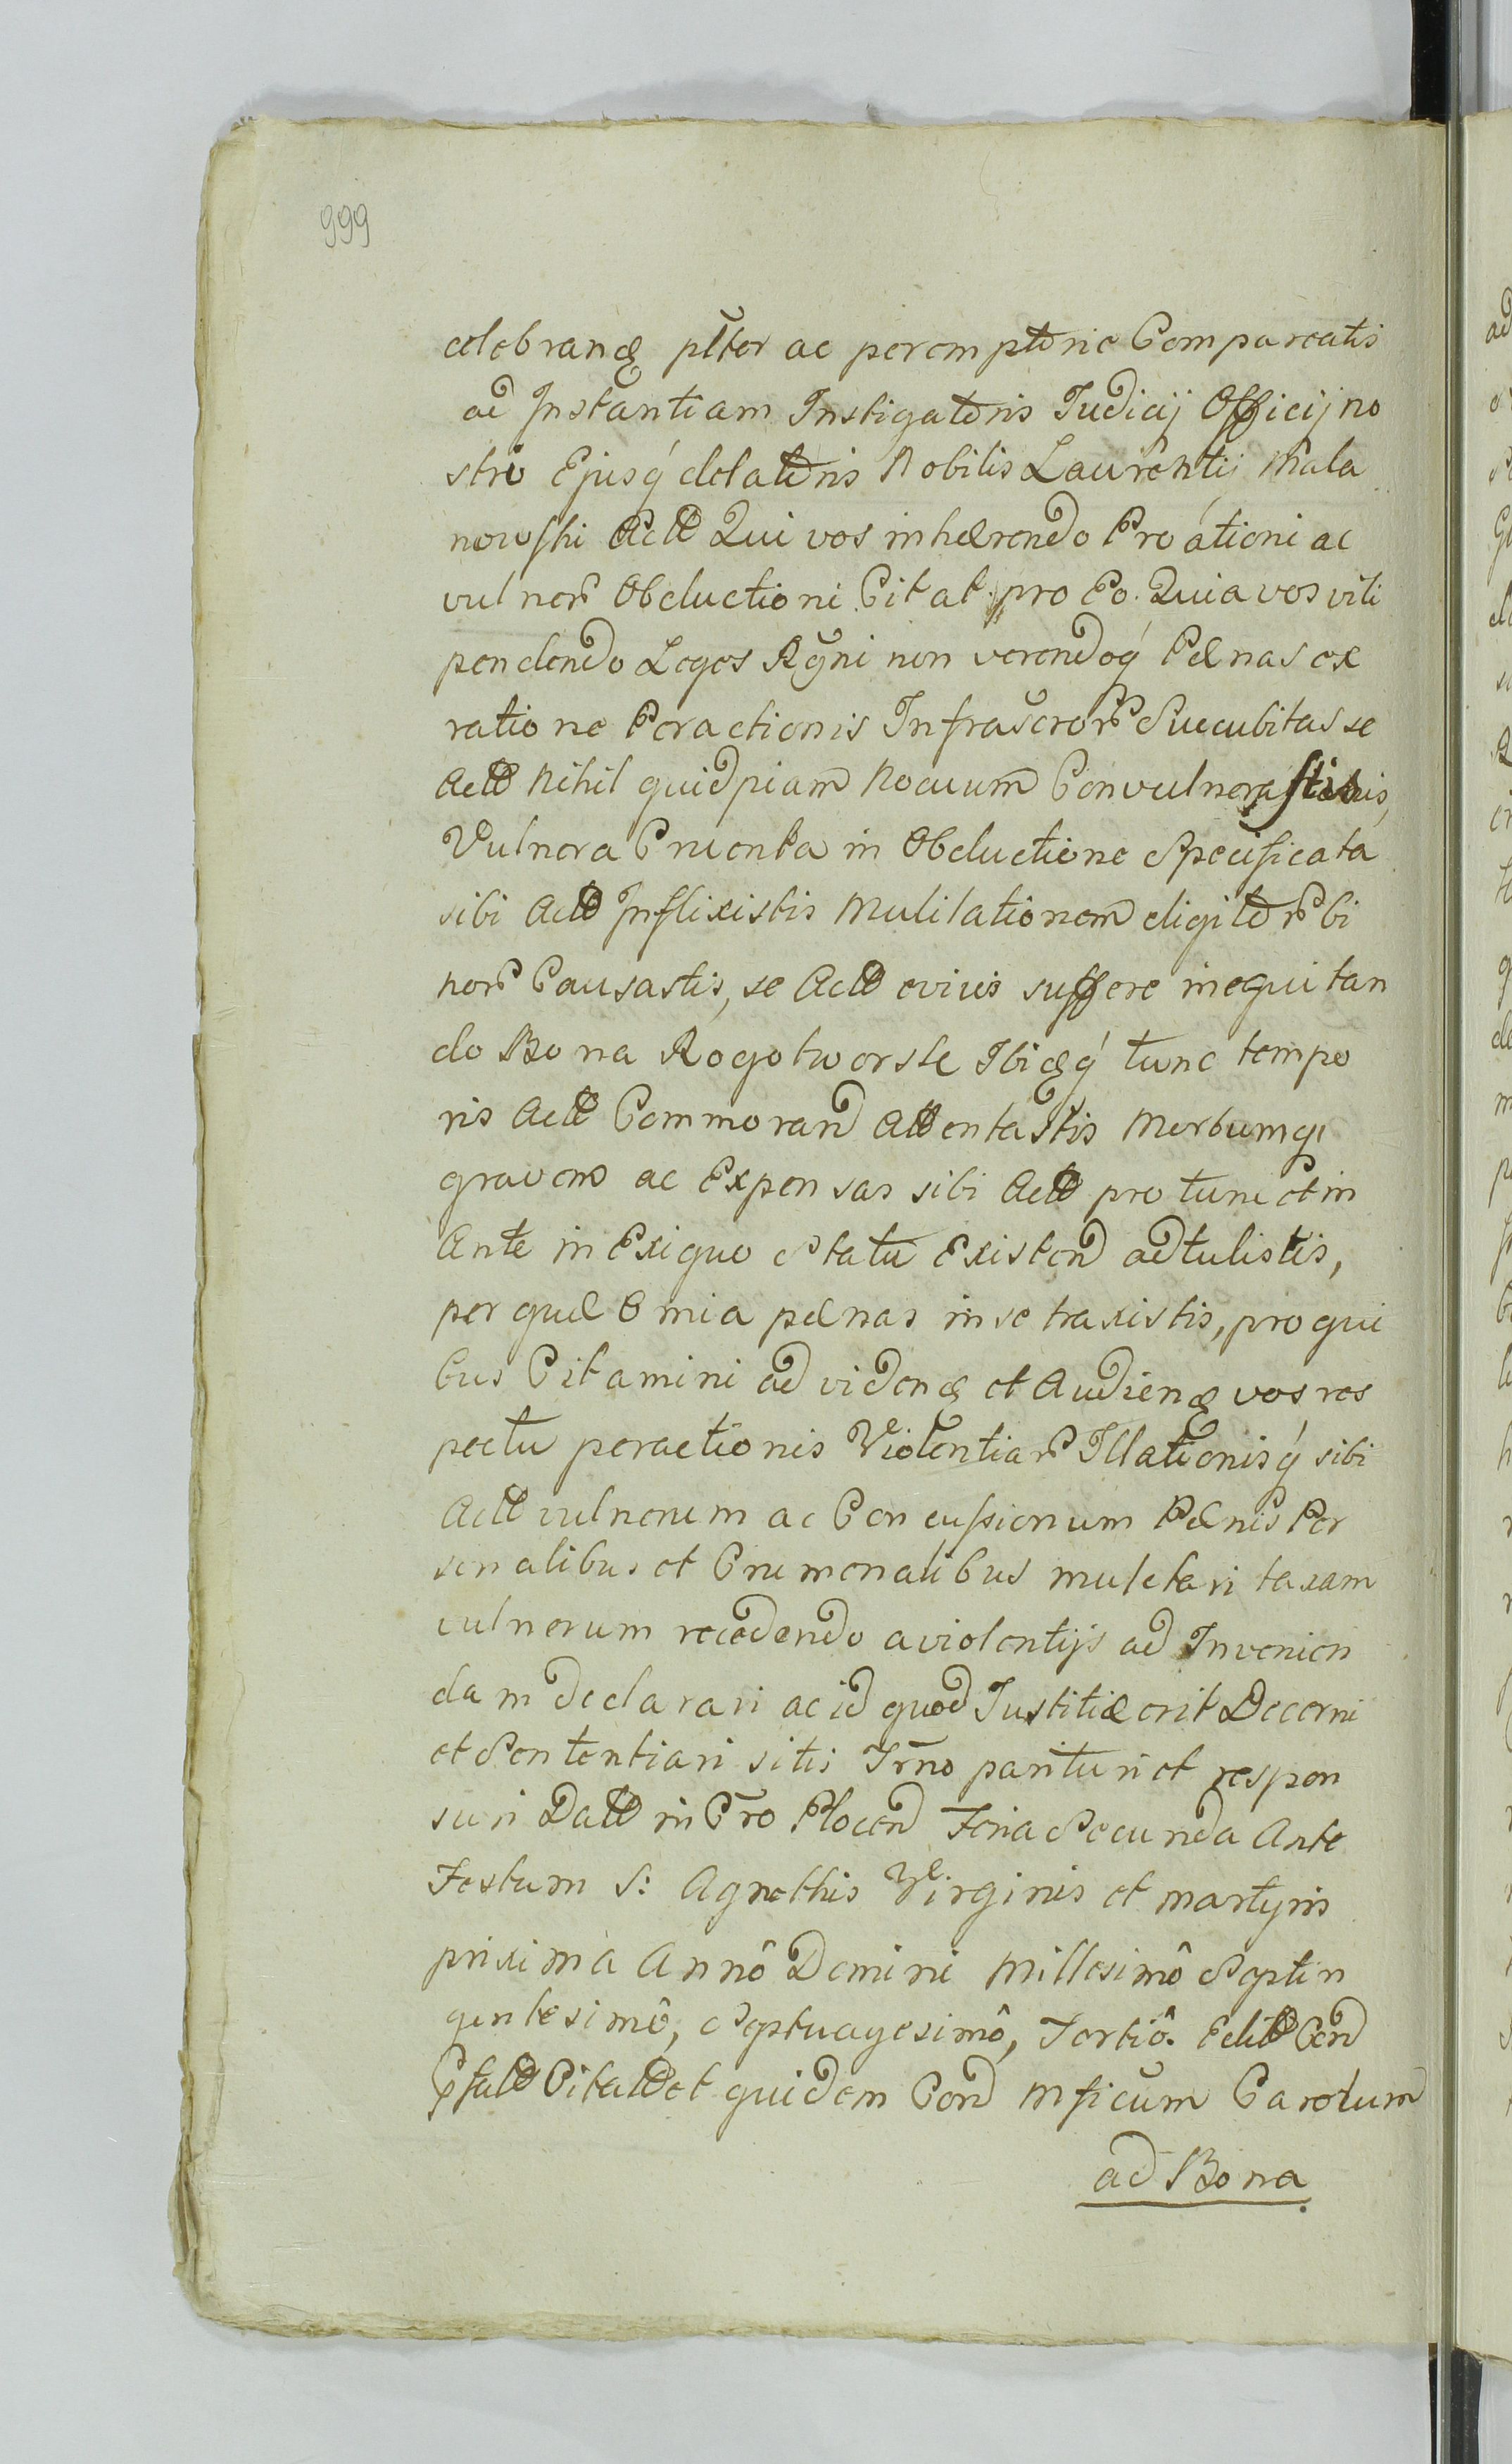 999
celebrand plter ac peremptorie Compareatis
ad Instantiam Instigatoris Judicij Officij no
stri Ejusq delatoris Nobilis Laurentij Mala
nowski Act Qui vos inhærendo Protationi ac
vulner Obductioni Citat pro Eo. Quia vos vili
pendendo Leges Rgni non verendoq Pænas ex
ratione Peractionis Infrascror Succubitas se
Act Nihil quidpiam Nocuum Convulnerastis,
Vulnera Cruenta in Obductione Specificata
sibi Act Inflixistis Mutilationem digitor bi
nor Causastis, se Act inequitan
do Bona Rogotworsk Ibidq tunc tempo
ris Act Commorand Attentastis Morbumq
gravem ac Expensas sibi Act pro tunc et in
Ante in Exiguo Statu Existend adtulistis,
per quæ Omia pænas in se traxistis, pro qui
bus Citamini ad vidend et Audiend vos res
pectu peractionis Violentiar Illationisq sibi
Act vulnerum ac Concussionum Pænis Per
sonalibus et Crumenalibus mulctari taxam
vulnerum recedendo a violentijs ad Invenien
dam declarari ac id quod Justitiæ erit Decerni
et Sententiari sitis Trno parituri et respon
suri Datt in Cro Plocen Feria Secunda Ante
Festum S: Agnethis Virginis et Martyris
prixima Annô Domini Millesimô Septin
gentesimô, Septuagesimô, Tertiô. Con
Citat et quidem Cond Mficum Carolum
ad Bona